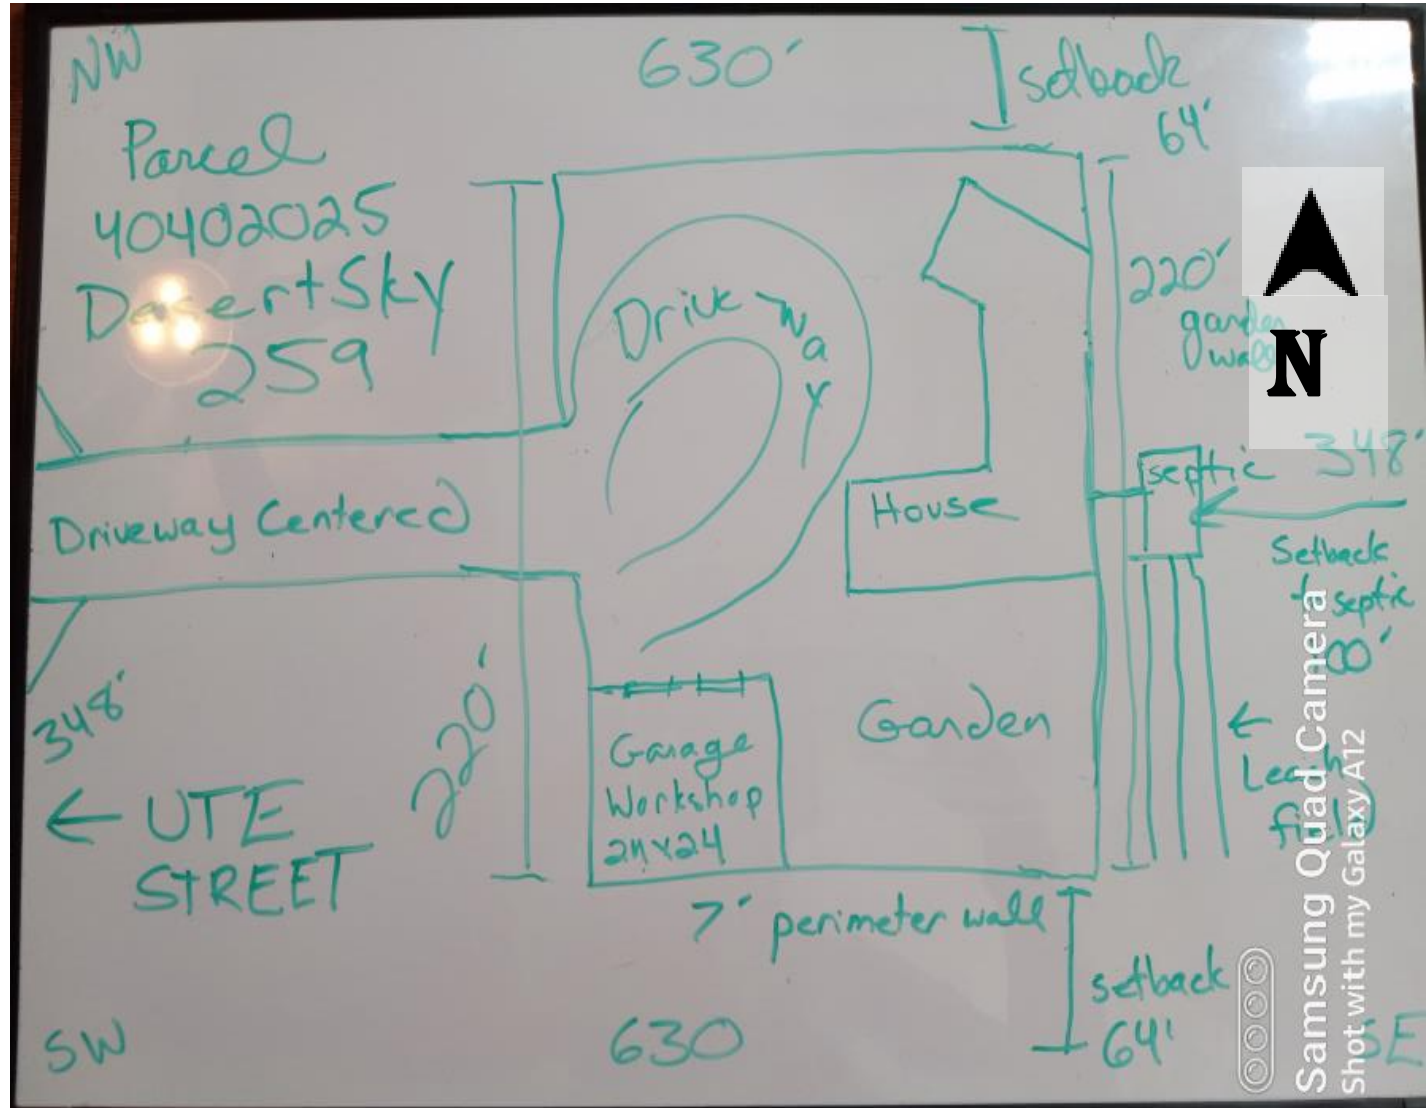 NW
630'
setback
64'
Parcel
40402025
Desert Sky
259
Driveway
220'
garden
wall
N
septic
348'
House
Driveway Centered
Setback
to septic
00'
348'
220'
Garage
Workshop
24x24
Garden
←
Leach
field
← UTE
STREET
7' perimeter wall
setback
64'
SW
630
SE
Samsung Quad Camera
Shot with my Galaxy A12